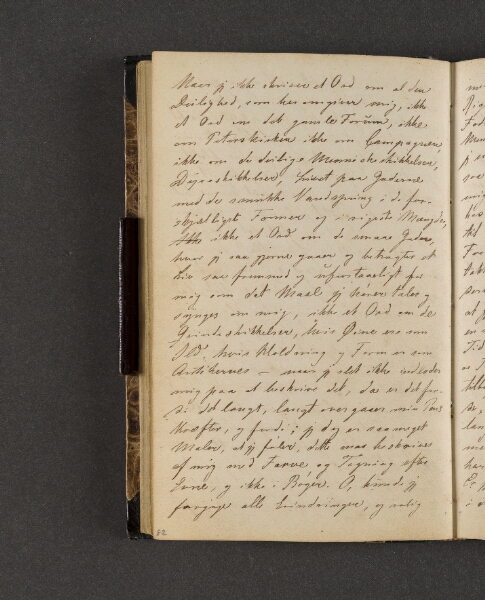 Naar jeg ikke skriver et Ord om al den
Deilighed, som her omgiver mig, ikke
et Ord om det gamle Forum, ikke
om Peterskirken ikke om Campagnen,
ikke om de deilige Menneskeskikkelser,
Dyreskikkelser, huset paa Gaderne
med de smukke Vandspring i de for-
skjelligste Former og i rigeste Mængde,
ikke et Ord om de smaa Gader,
hvor jeg saa gjerne gaaer og betragter et
Liv saa fremmed og uforstaaeligt for
mig som det Maal jeg hører tales og
synges om mig, ikke et Ord om de
Qvindeskikkelser, hvis Øine ere som
Ild, hvis Holdning og Form er som
Antikernes – naar jeg slet ikke indlader
mig paa at beskrive det, da er det for-
di det langt, langt overgaaer mine
Kræfter, og fordi jeg dog er saa meget
Maler, at jeg føler, dette maa beskrives
af mig med Farve og Tegning efter
Evne, og ikke i Bøger. O, kunde jeg
forgige alle Erindringer, og rolig
82